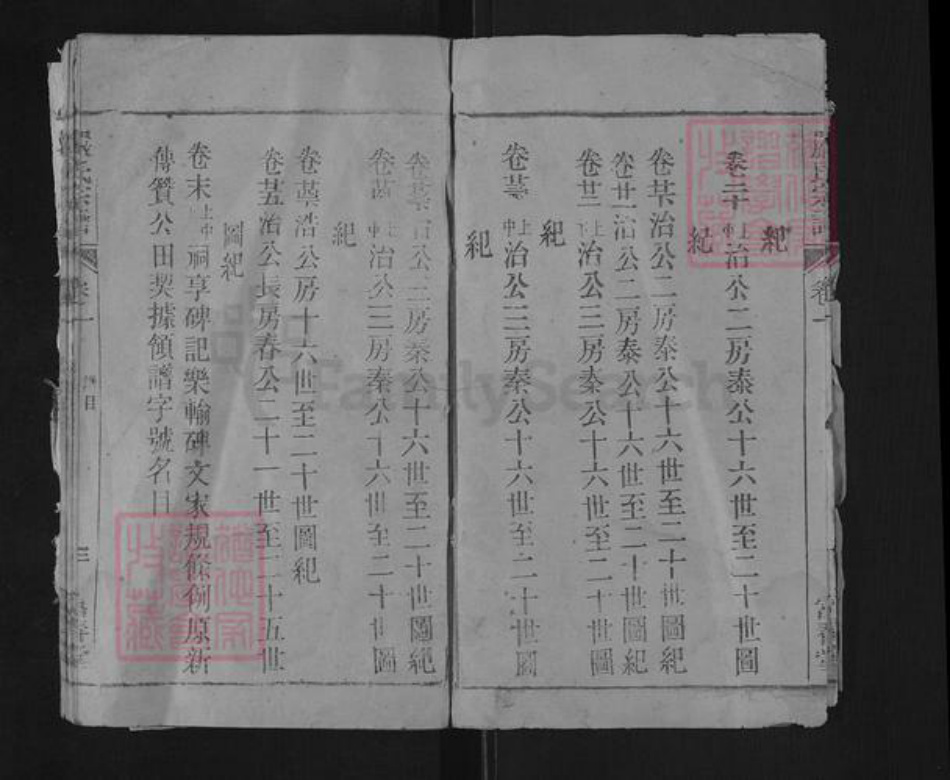 氏宗譜 卷一 富春堂
紀
卷二十上中治公二房泰公十六世至二十世圖
紀
卷治公二房泰公十六世至二十世圖紀
卷廿治公二房泰公十六世至二十世圖紀
卷廿治公三房秦公十六世至二十世圖
紀
卷上中治公三房秦公十六世至二十世圖
紀
卷治公三房秦公十六世至二十世圖紀
卷上中治公三房秦公十六世至二十世圖
紀
卷浩公房十六世至二十世圖紀
卷治公長房春公二十一世至二十五世
圖紀
卷末上中祠享碑記樂輸碑文家規條例原新
傳贊公田契據領譜字號名目
氏宗譜 卷一 目 三 春堂
FamilySearch